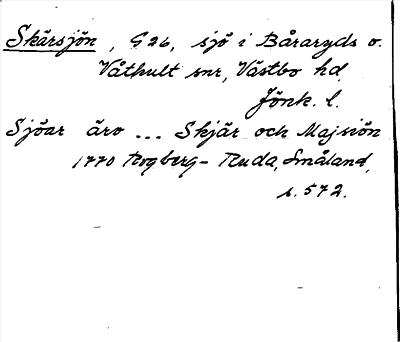 Skärsjön, G26, sjö i Båraryds o.
Våthult snr, Västbo hd,
Jönk. l.
Sjöar äro ... Skjär och Majsiön
1770 Rogberg-Ruda, Småland,
s. 572.